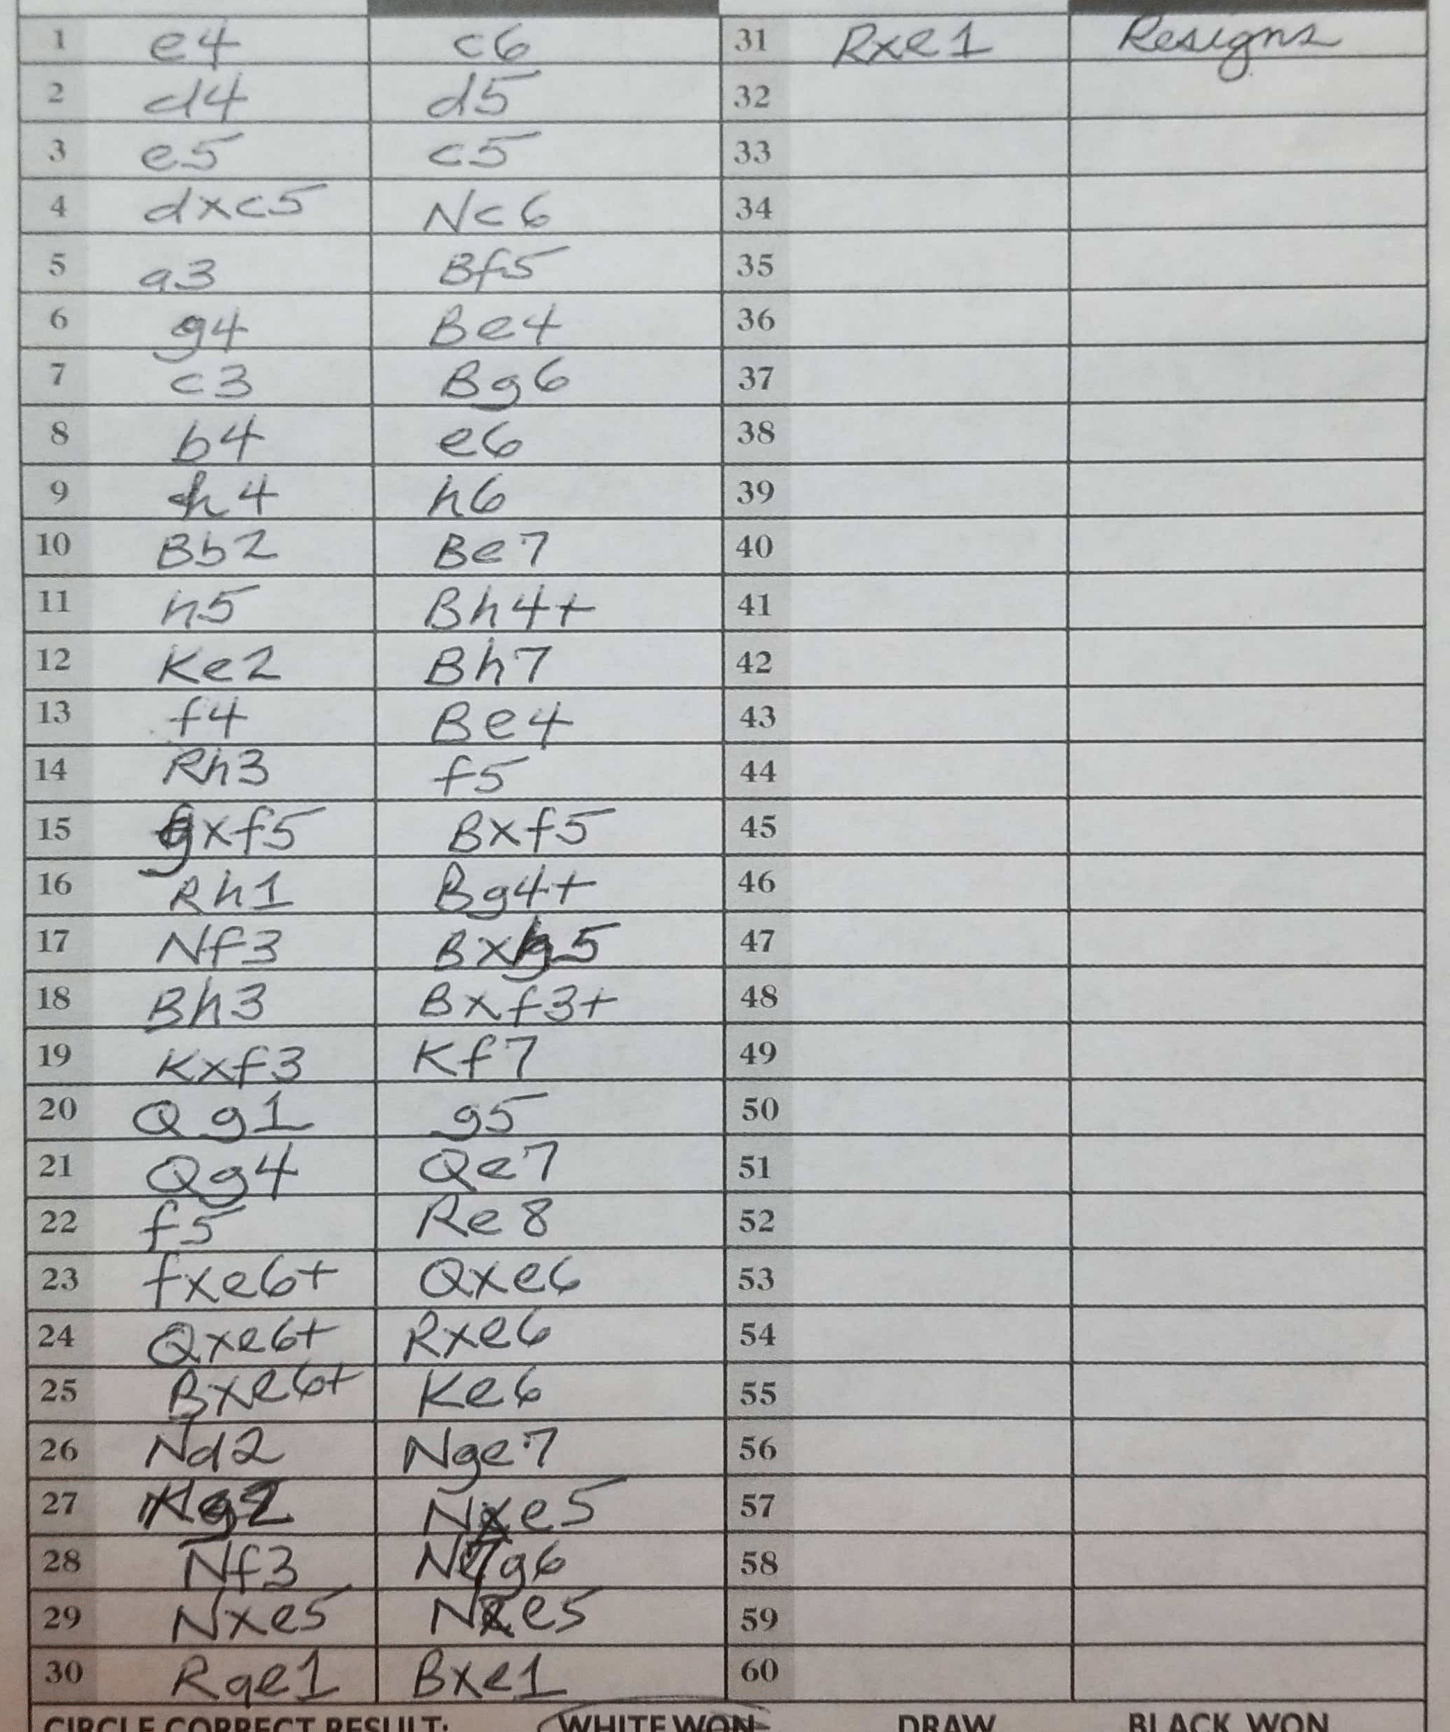 1 e4 c6 31 Rxe1 Resigns
2 d4 d5 32
3 e5 c5 33
4 dxc5 Nc6 34
5 a3 Bf5 35
6 g4 Be4 36
7 c3 Bg6 37
8 b4 e6 38
9 h4 h6 39
10 Bb2 Be7 40
11 h5 Bh4+ 41
12 Ke2 Bh7 42
13 f4 Be4 43
14 Rh3 f5 44
15 gxf5 Bxf5 45
16 Rh1 Bg4+ 46
17 Nf3 Bxh5 47
18 Bh3 Bxf3+ 48
19 Kxf3 Kf7 49
20 Qg1 g5 50
21 Qg4 Qe7 51
22 f5 Re8 52
23 fxe6+ Qxe6 53
24 Qxe6+ Rxe6 54
25 Bxe6+ Ke6 55
26 Nd2 Nge7 56
27 Kg2 Nxe5 57
28 Nf3 N7g6 58
29 Nxe5 Nxe5 59
30 Rae1 Bxe1 60
CIRCLE CORRECT RESULT: WHITE WON DRAW BLACK WON